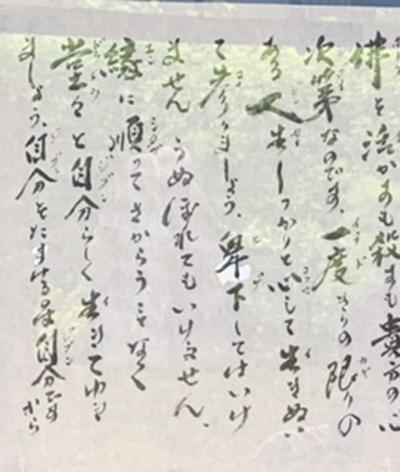 佛を活かすも殺すも貴方の心
次第なのです、一度きりの限りの
人生しっかりと心して生きぬい
て参りましょう、卑下してはいけ
ません うぬぼれてもいけません、
縁に順ってさからうことなく
堂々と自分らしく生きてゆき
ましょう、自分をだますのは自分ですから